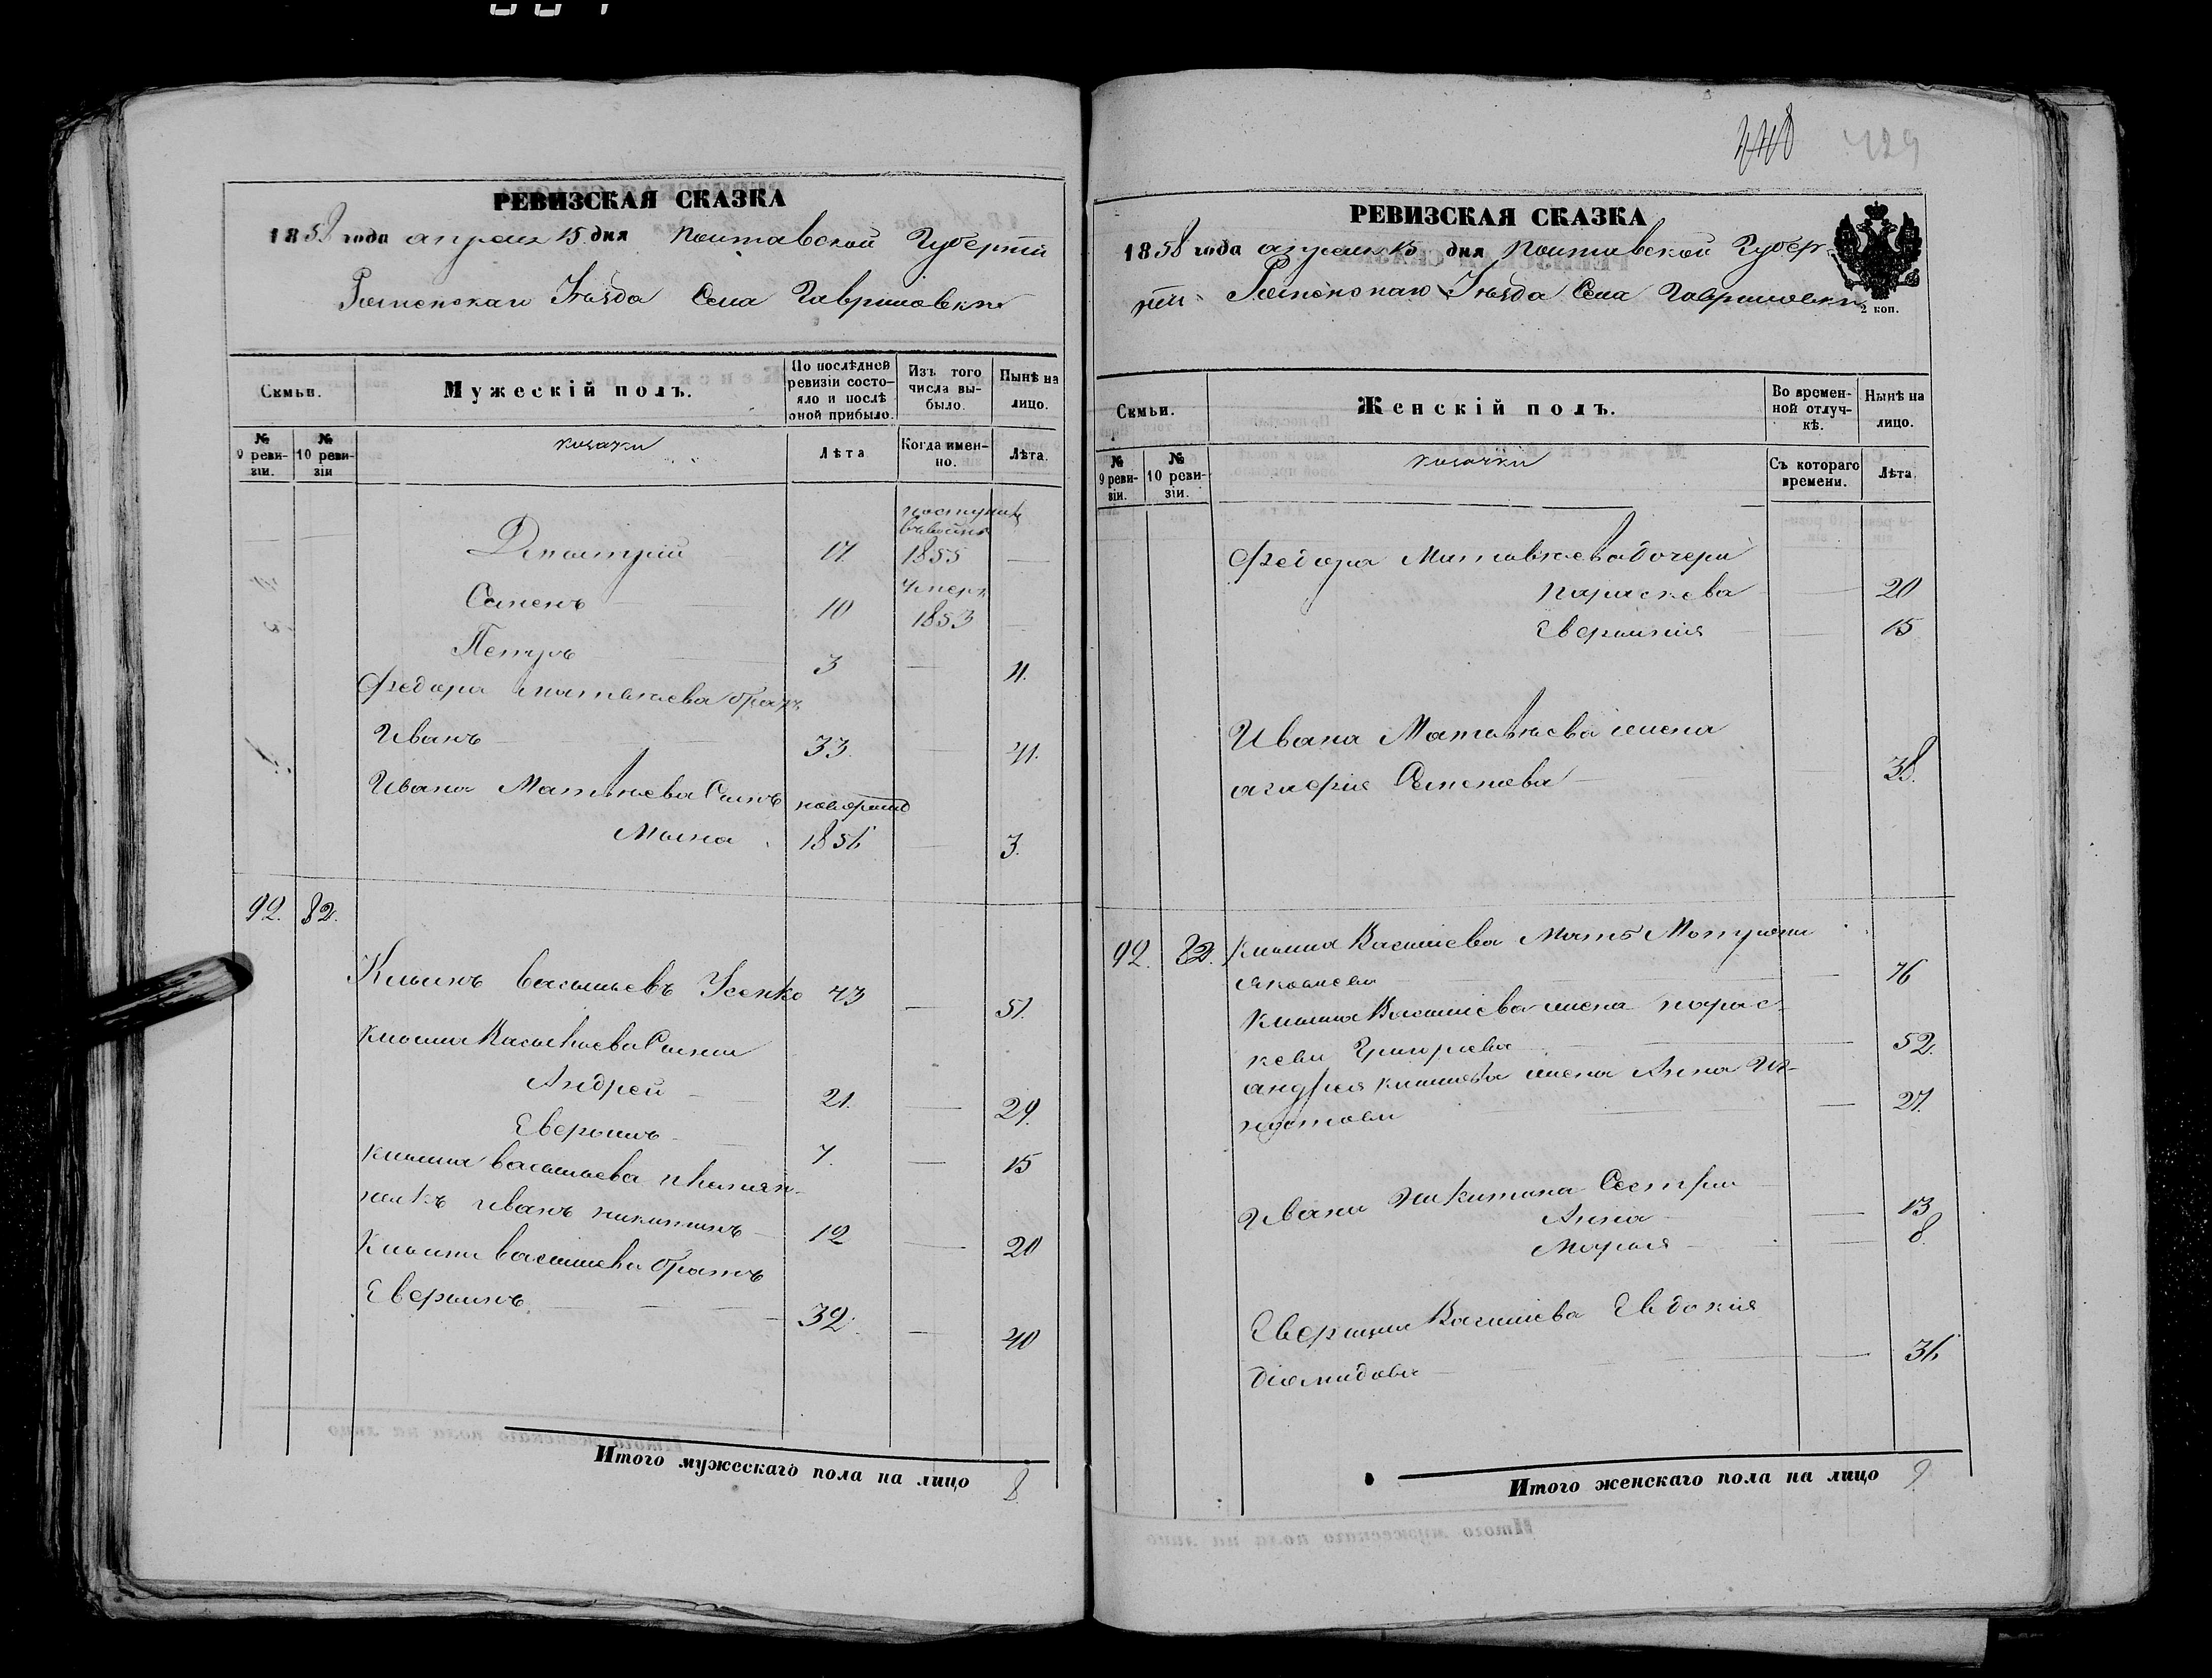 РЕВИЗСКАЯ СКАЗКА
1858 года апреля 15 дня Полтавской Губерніи
Роменскаго Уѣзда Села Гавриловки
Семьи.
Мужескій полъ.
По послѣдней ревизіи состояло и послѣ оной прибыло.
Изъ того числа выбыло.
Нынѣ на лицо.
№ 9 ревизіи.
№ 10 ревизіи
козаки
Лѣта
Когда именно.
Лѣта.
Дмитрій 17. 1855
Семенъ 10 умеръ 1853
Петръ 3 11.
Федора Матвѣева братъ
Иванъ 33. 41.
Ивана Матвѣева Сынъ новорожд
1856 3.
92. 82.
Климъ Васильевъ Усенко 43 51.
Клима Васильева Сыны
Андрей 21. 29.
Аверьянъ 7. 15
Клима Васильева племян-
никъ Иванъ Никитинъ 12 20
Клима Васильева братъ
Аверьянъ 32. 40
Итого мужескаго пола на лицо 8
429
РЕВИЗСКАЯ СКАЗКА
1858 года апреля 15 дня Полтавской Губер-
ніи Роменскаго Уѣзда Села Гавриловки
2 коп.
Семьи.
Женскій полъ.
Во временной отлучкѣ.
Нынѣ на лицо.
№ 9 ревизіи.
№ 10 ревизіи.
козачки
Съ котораго времени.
Лѣта.
Федора Матвѣева дочери
Параскева 20
15
Ивана Матвѣева жена
Агафія Семенова 38.
92. 82. Клима Васильева Мать Мотрона
Яковлева 76
Клима Васильева жена Парас-
кева Григорьева 52.
Андрея Климова жена Анна Иг-
натова 27.
Ивана Никитина Сестры
Анна 13
Марья 8.
Аверьяна Васильева Евдокія
Діомидова 36
Итого женскаго пола на лицо 9